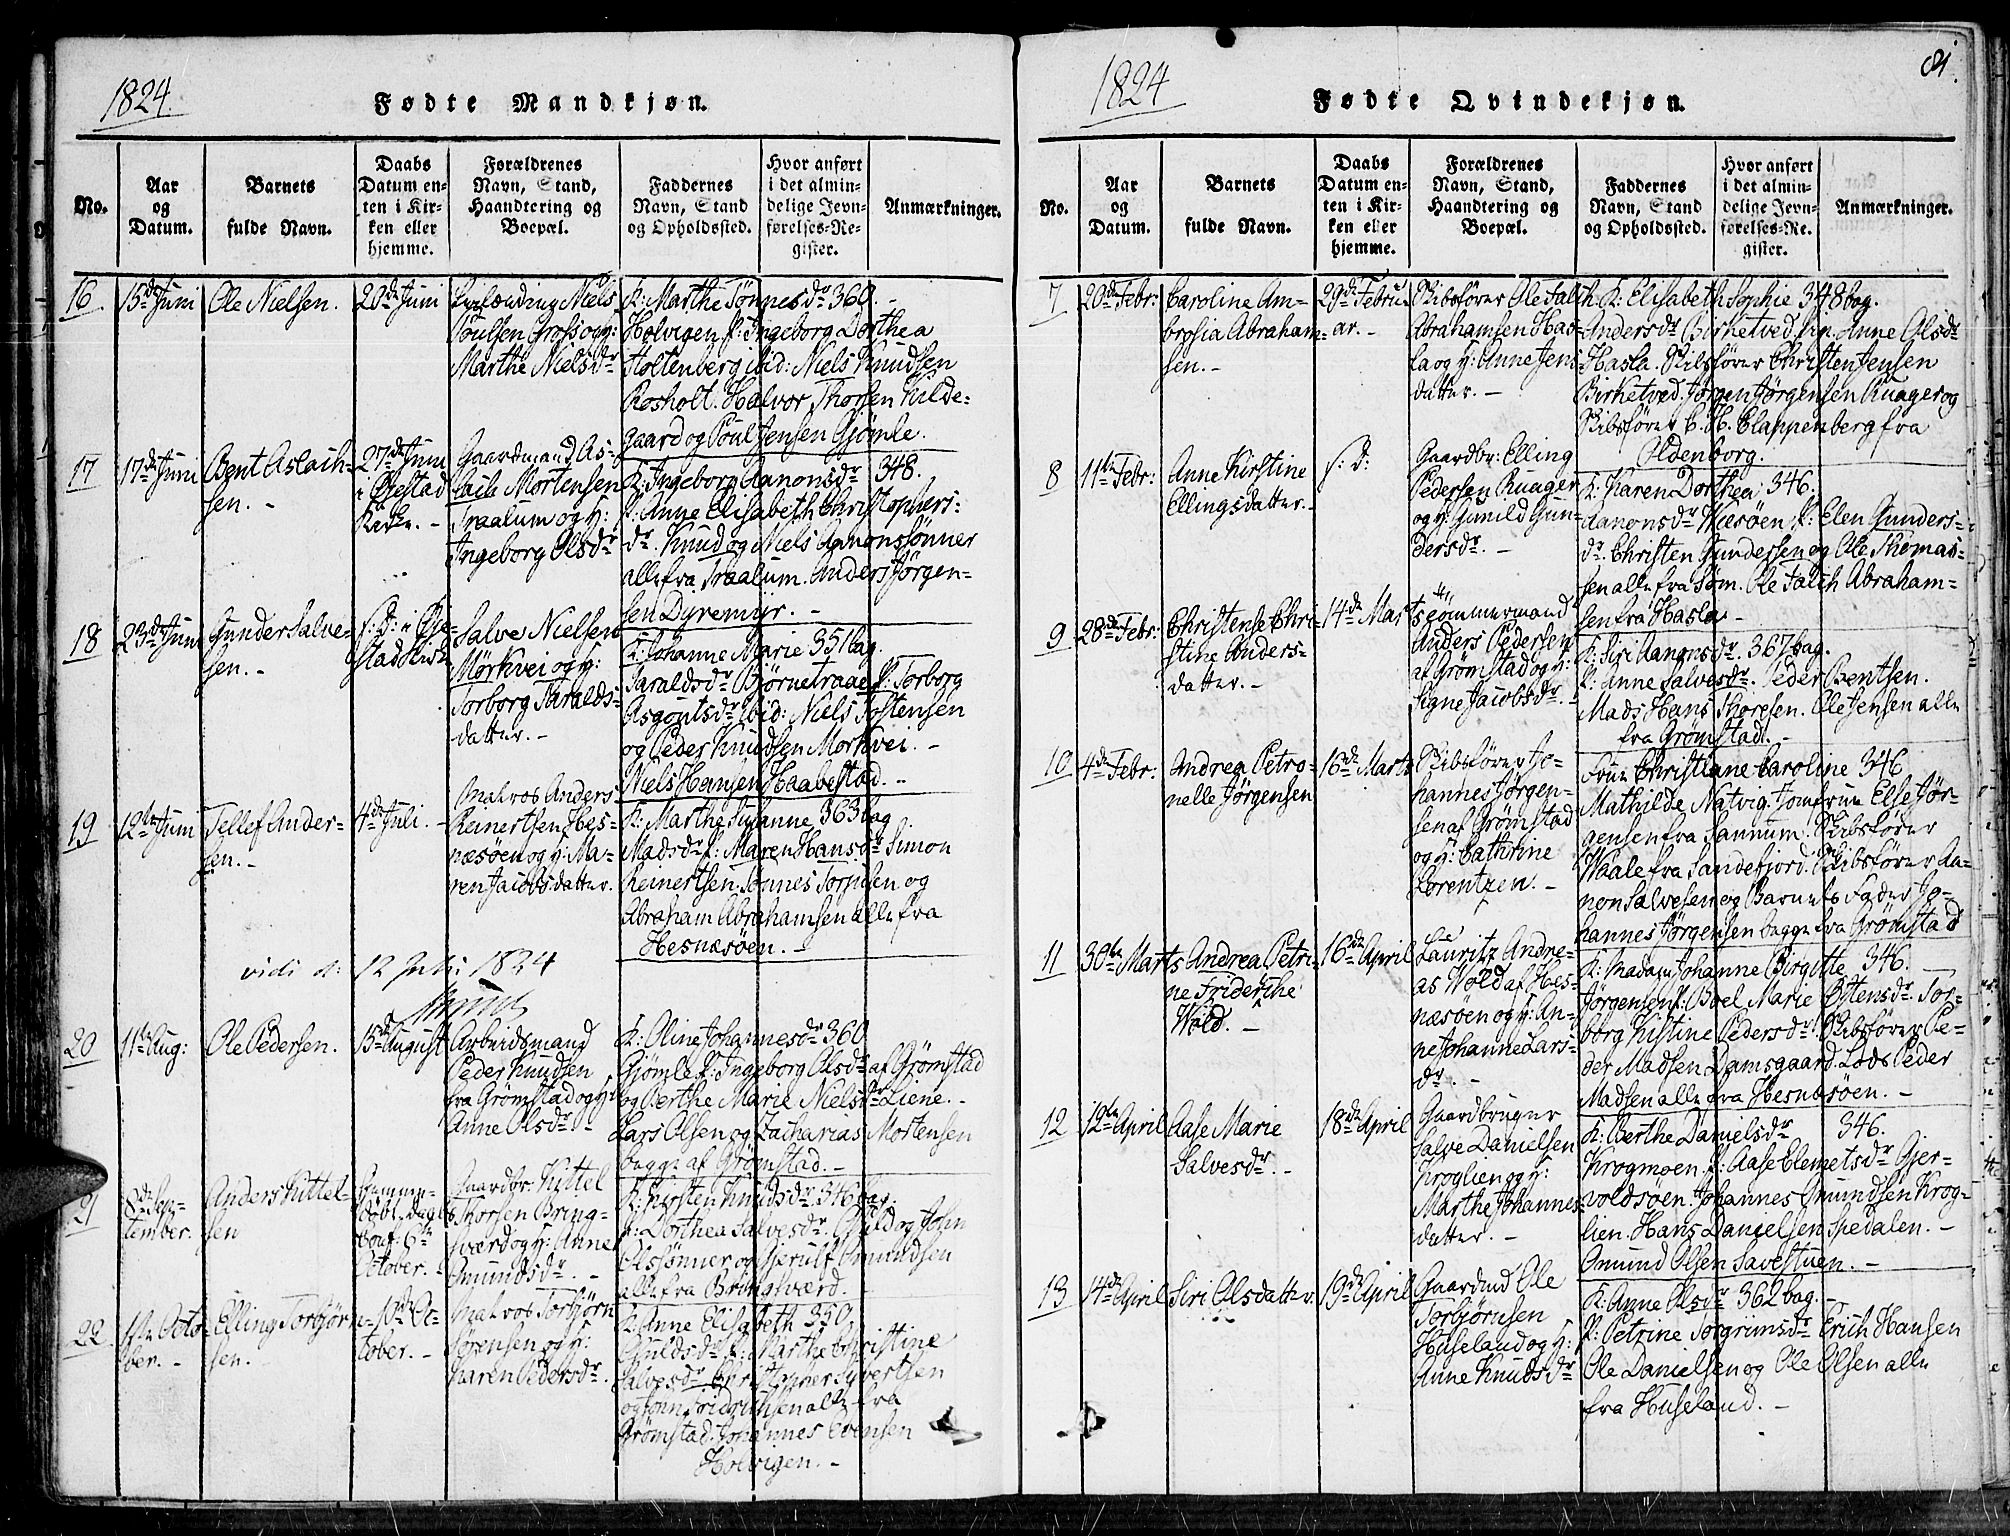 1824.
Fødte Mandkjøn.
No.
Aar og Datum.
Barnets fulde Navn.
Daabs Datum enten i Kirken eller hjemme.
Forældrenes Navn, Stand, Haandtering og Boepæl.
Faddernes Navn, Stand og Opholdssted.
Hvor anført i det almindelige Jevnførelses-Register.
Anmærkninger.
16
15de Juni
Ole Nielsen.
20de Juni
Niels
Poulsen Groos og H:
Marthe Nielsdr
K: Marthe Tønnesdr 360. -
Holvigen. P: Ingeborg Dorthea
Holtenberg ibid: Niels Knudsen
Rosholt. Halvor Thorsen Kilde-
gaard og Poul Jensen Gjømle.
17
17de Juni
Bent Aslach-
sen. -
27de Juni
i Øiestad
Kirke. -
Gaardmand As-
lach Mortensen
Traalum og H:
Ingeborg Olsdr
K: Ingeborg Aanonsdr 348.
P: Anne Elisabeth Christophers-
dr. Knud og Niels Aanonssønner
alle fra Traalum. Anders Jørgen-
sen Dyremyr. -
18
23de Juni
Gunder Salve-
sen. -
s: D: i Øie-
stad Kirk
Salve Nielsen
Mørkvei og H:
Torborg Taralds-
datter. -
K: Johanne Marie 351 bag.
Taraldsdr Bjørnetraae P: Torborg
Asgoutsdr ibid: Niels Tostensen
og Peder Knudsen Morkvei. -
Niels Hansen Haabestad. -
19
12te Juni
Tellef Ander-
sen. -
4de Juli. -
Matros Anders
Reinertsen Hes-
næsøen og H: Ma-
ren Jacobsdatter.
K: Marthe Susanne 363 bag
Madsdr P: Maren Hansdr Simon
Reinertsen. Tønnes Torjusen og
Abraham Abrahamsen alle fra
Hesnæsøen. -
vidi d: 12 Juli 1824
20
11te Aug:
Ole Pedersen.
15de August
Arbeidsmand
Peder Knudsen
fra Grømstad og H:
Anne Olsdr -
K: Oline Johannesdr 360
Gjømle P: Ingeborg Olsdr af Grømstad
og Berthe Marie Nielsdr Liene. -
Lars Olsen og Zacharias Mortensen
begge af Grømstad. -
21
8de Sep-
tember.
Anders Kittel-
sen
Hjemme-
døbt. dagl
conf: 6te
October. -
Gaardbr. Kittel
Thorsen Bring-
sværd og H: Anne
Gmundsdr. -
K: Kirsten Knudsdr. 346 bag.
P: Dorthea Salvesdr. Guld og John
Olssønner og Gjerulf Omundsen
alle fra Bringsværd.
22
1ste Octo-
ber. -
Elling Torbjørn-
sen. -
10de Oc-
tober. -
Matros Torbjørn
Sørensen og H:
Karen Pedersdr.
K: Anne Elisabeth 350
Guldsdr P: Marthe Christine
Salvesdr Christopher Syvertsen
og Tønn. Fridrichsen alle fra
Grømstad. Johannes Evensen
Holvigen. -
1824
81.
Fødte Qvindekjøn.
No.
Aar og Datum.
Barnets fulde Navn.
Daabs Datum enten i Kirken eller hjemme.
Forældrenes Navn, Stand, Haandtering og Boepæl.
Faddernes Navn, Stand og Opholdssted.
Hvor anført i det almindelige Jevnførelses-Register.
Anmærkninger.
7
20de Febr:
Caroline Am-
brosia Abraham-
sen. -
29de Febru-
ar. -
Skibsfører Ole Falch
Abrahamsen Has-
la og H: Anne Jens-
datter. -
K: Elisabeth Sophie 348 bag.
Andersdr Birketved. Pig. Anne Olsdr
Hasla. Skibsfører Christen Jensen
Birketved. Jørgen Jørgensen Ruager og
Skibsfører C. H. Clappenberg fra
Oldenborg.
8
11te Febr:
Anne Kirstine
Ellingsdatter. -
s: d:
Gaardbr: Elling
Pedersen Ruager
og H: Gunild Gun-
dersdr. -
K: Karen Dorthea 346.
Aanonsdr Wæsøen P: Elen Gunders-
dr Christen Gundersen og Ole Thomas-
sen alle fra Søm. Ole Falch Abraham-
sen fra Hasla. -
9
28de Febr:
Christense Chri-
stine Anders-
datter. -
14de Marts
Tømmermand
Anders Pedersen
af Grømstad og H:
Signe Jacobsdr. -
K: Siri Aanonsdr. 367 bag.
P: Anne Salvesdr. Peder Bentsen.
Mads Hans Thoresen. Ole Jensen alle
fra Grømstad. -
10
4de Febr:
Andrea Petro-
nelle Jørgensen
16de Marts
Skibsfører Jo-
hannes Jørgen-
sen af Grømstad
og H: Cathrine
Lorentzen. -
Frue Christiane Caroline 346
Mathilde Natvig. Jomfrue Else Jør-
gensen fra Sannum. Skibsfører
Waale fra Sandefjord. Skibsfører Aa-
non Salvesen og Barnets Fader Jo-
hannes Jørgensen begge fra Grømstad
11
30te Marts
Andrea Petri-
ne Friderche
Wold. -
16de April
Lauritz Andre-
as Wold af Hes-
næsøen og H: An-
ne Johanne Lars-
dr. -
K: Madam Johanne Birgitte 346.
Jørgensen P: Boel Marie Østensdr. Tor-
borg Kistine Pedersdr. Skibsfører Pe-
der Madsen Damsgaard. Lods Peder
Madsen alle fra Hesnæsøen. -
12
12te April
Aase Marie
Salvesdr. -
18de April
Gaardbruger
Salve Danielsen
Kroglien og H:
Marthe Johannes-
datter. -
K: Berthe Danielsdr 346.
Krogmoen. P: Aase Clemetsdr Gjer-
voldsøen. Johannes Gmundsen Krog-
lien. Hans Danielsen Spedalen. -
Omund Olsen Savestuen. -
13
14de April
Siri Olsdatter.
19de April
Gaardmd Ole
Torbjørnsen
Huseland og H:
Anne Knudsdr
K: Anne Olsdr 362 bag. -
P: Petrine Torgrimsdr Erich Hansen
Ole Danielsen og Ole Olsen alle
fra Huseland. -